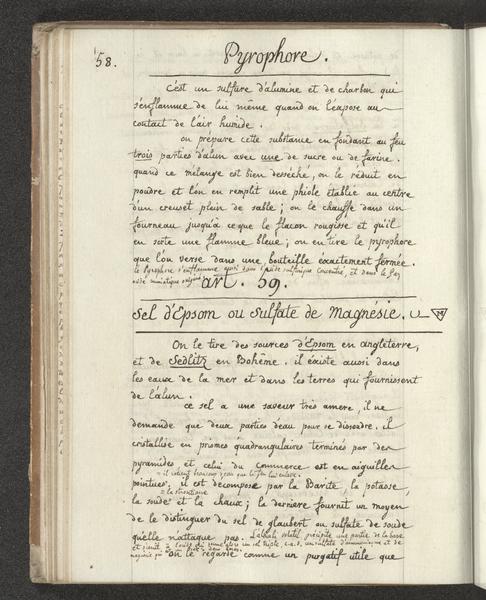 58.
Pyrophore.
C'est un sulfure d'alumine et de charbon qui
s'enflamme de lui même quand on l'expose au
contact de l'air humide.
on prépare cette substance en fondant au feu
trois parties d'alun avec une de sucre ou de farine.
quand ce mélange est bien desséché, on le réduit en
poudre et l'on en remplit une phiole établie au centre
d'un creuset plein de sable; on le chauffe dans un
fourneau jusqu'à ceque le flacon rougisse et qu'il
en sorte une flamme bleue; on en tire le pyrophore
que l'on verse dans une bouteille éxactement fermée.
le Pyrophore s'enflamme aussi dans l'acide sulfurique concentré, et dans le gaz
acide muriatique oxigené
art. 59.
Sel d'Epsom ou Sulfate de Magnésie.
On le tire des sources d'Epsom en angleterre,
et de Sedlitz en Bohême. il éxiste aussi dans
les eaux de la mer et dans les terres qui fournissent
de l'alun.
ce sel a une saveur très amere, il ne
demande que deux parties d'eau pour se dissoudre. il
cristallise en prismes quadrangulaires terminés par des
pyramides et celui du commerce est en aiguilles
= il retient beaucoup d'eau
pointues; il est décomposé par la Barite la potasse,
= la strontiane
la soude et la chaux; la derniere fournit un moyen
de le distinguer du sel de glaubert ou sulfate de soude
qu'elle n'attaque pas. L'alkali volatil précipite une partie de la base
et forme un sel triple, c.a.d. un sulfate d'ammoniaque et de
magnésie
on le regarde comme un purgatif utile que